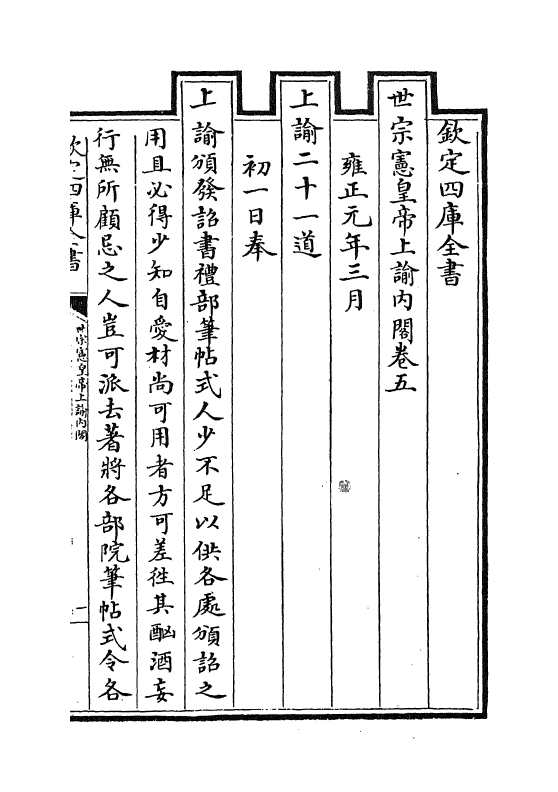 欽定四庫全書
世宗憲皇帝上諭內閣卷五
雍正元年三月
上諭二十一道
初一日奉
上諭頒發詔書禮部筆帖式人少不足以供各處頒詔之
用且必得少知自愛材尚可用者方可差徃其酗酒妄
行無所顧忌之人豈可派去著將各部院筆帖式令各
欽定四庫全書
世宗憲皇帝上諭內閣
一